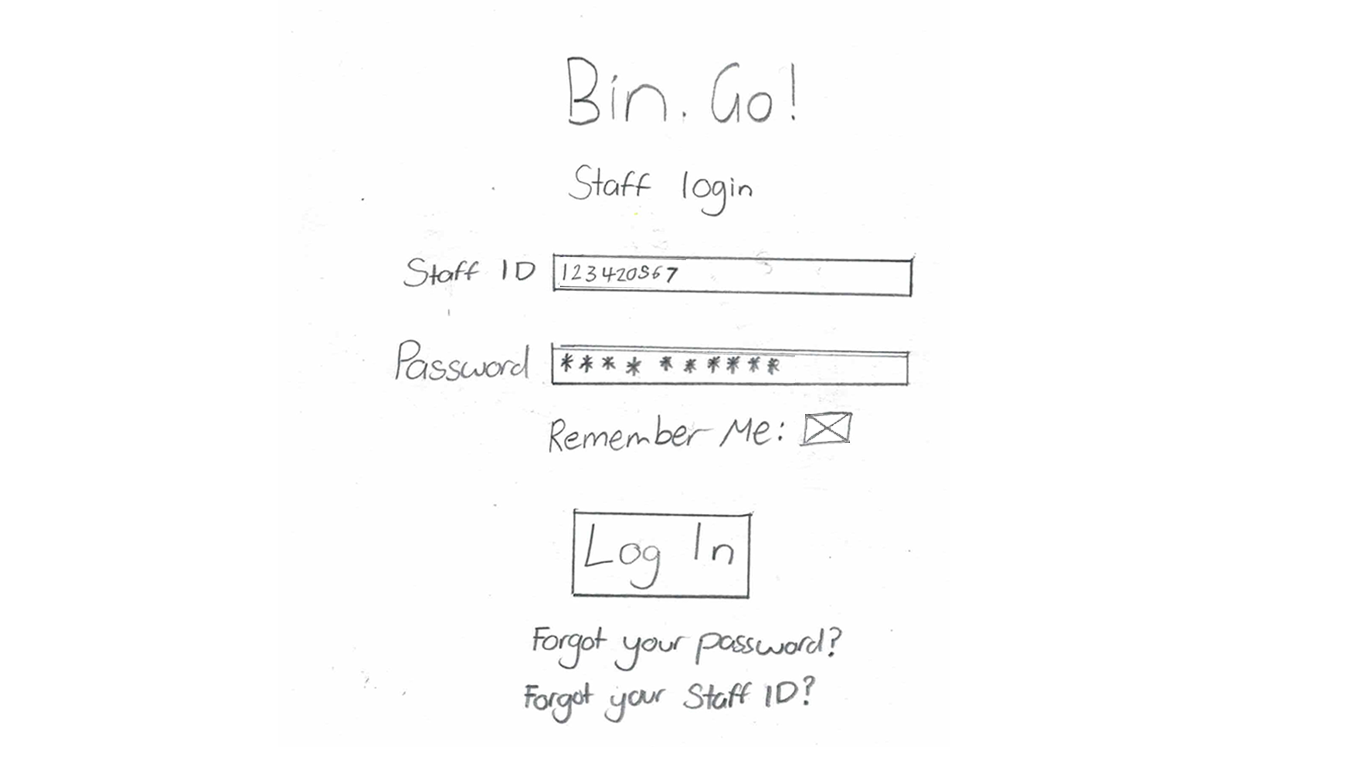 Bin. Go!
Staff login
Staff ID 123420567
Password **********
Remember Me:
Log In
Forgot your password?
Forgot your Staff ID?